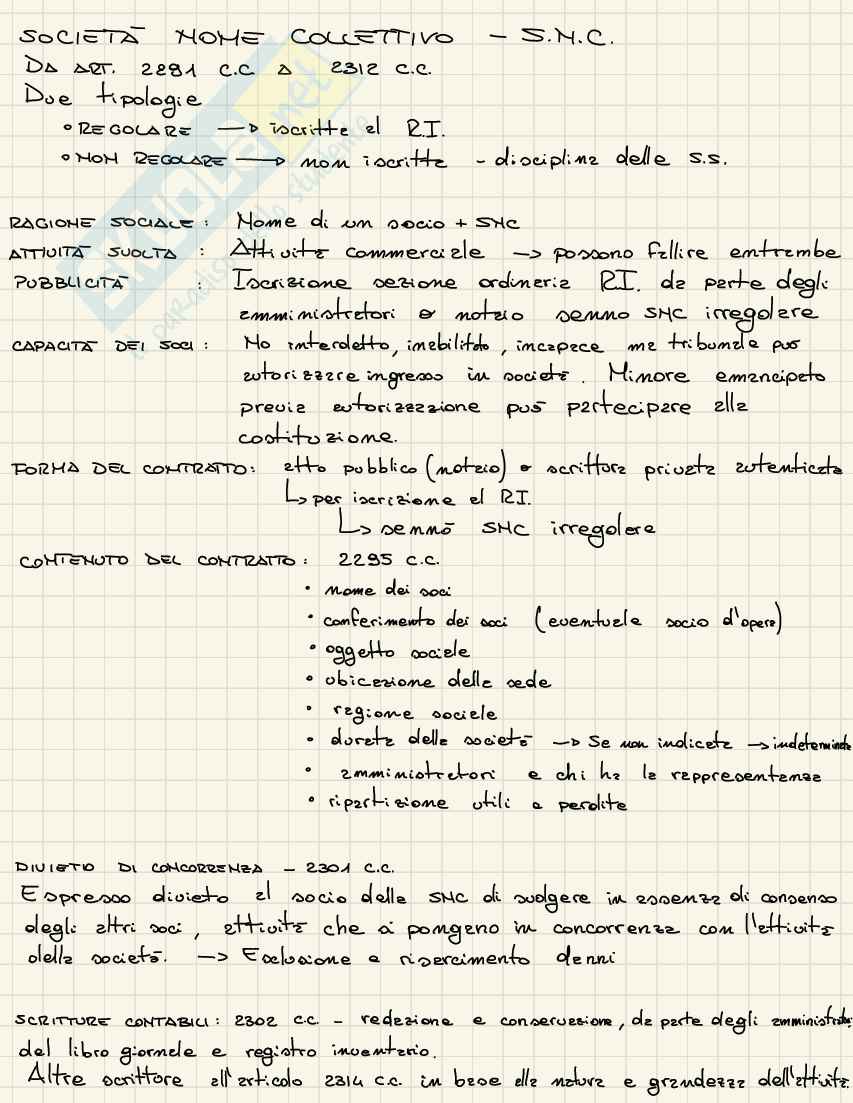 SOCIETÀ NOME COLLETTIVO - S.N.C.
DA ART. 2291 C.C A 2312 C.C.
Due tipologie
• REGOLARE → iscritte al R.I.
• NON REGOLARE → non iscritta - disciplina delle S.S.
RAGIONE SOCIALE: Nome di un socio + SNC
ATTIVITÀ SVOLTA: Attività commerciale → possono fallire entrambe
PUBBLICITÀ: Iscrizione sezione ordineria R.I. da parte degli
amministratori o notaio senno SNC irregolare
CAPACITÀ DEI SOCI: No interdetto, inabilitato, incapace ma tribunale può
autorizzare ingresso in società. Minore emancipato
previa autorizzazione può partecipare alla
costituzione.
FORMA DEL CONTRATTO: atto pubblico (notaio) o scrittura privata autenticata
↳ per iscrizione al R.I.
↳ sennò SNC irregolare
CONTENUTO DEL CONTRATTO: 2295 C.C.
• nome dei soci
• conferimento dei soci (eventuale socio d'opera)
• oggetto sociale
• ubicazione della sede
• ragione sociale
• durata della società → Se non indicata → indeterminata
• amministratori e chi ha la rappresentanza
• ripartizione utili e perdite
DIVIETO DI CONCORRENZA - 2301 C.C.
Espresso divieto al socio della SNC di svolgere in assenza di consenso
degli altri soci, attività che si pongano in concorrenza con l'attività
della società. → Esclusione e risarcimento danni
SCRITTURE CONTABILI: 2302 C.C. - redazione e conservazione, da parte degli amministratori
del libro giornale e registro inventario.
Altre scritture all'articolo 2214 C.C. in base alla natura e grandezza dell'attività.
SKUOLA.net
il paradiso dello studente